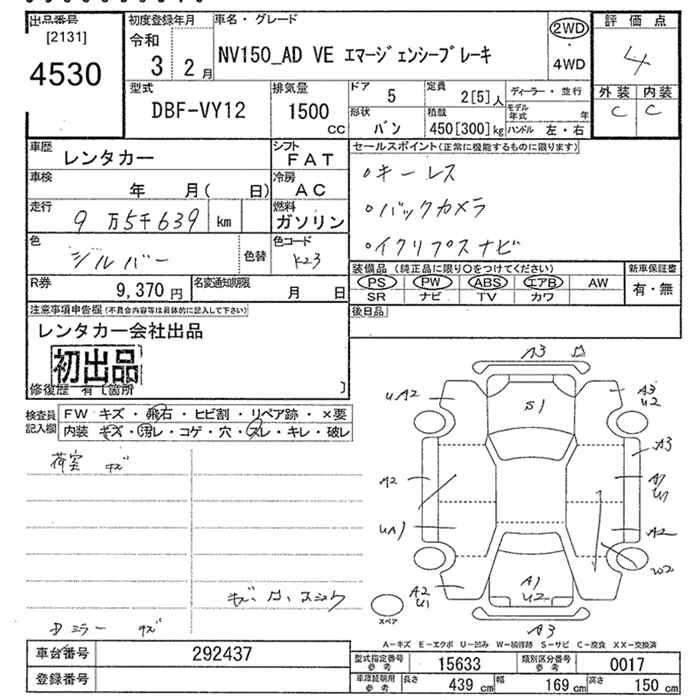 出品番号
[2131]
4530
初度登録年月
令和
3 2月
車名・グレード
NV150_AD VE エマージェンシーブレーキ
2WD
・
4WD
評価点
4
外装 内装
C C
型式
DBF-VY12
排気量
1500
cc
ドア
5
定員
2[5]人
ディーラー・並行
形状
バン
積載
450[300]kg
モデル年式 年
ハンドル 左・右
車歴
レンタカー
シフト
FAT
車検
年 月( 日)
冷房
AC
走行
9万5千639 km
燃料
ガソリン
色
シルバー
色替
色コード
K23
R券
9,370円
名変通知期限
月 日
セールスポイント(正常に機能するものに限ります)
・キーレス
・バックカメラ
・イクリプスナビ
装備品 (純正品に限り○をつけてください)
PS PW ABS エアB AW
SR ナビ TV カワ
新車保証書
有・無
後日品
注意事項申告欄(不具合内容等は具体的に記入して下さい)
レンタカー会社出品
初出品
修復歴 有〔箇所 〕
検査員
記入欄
FW キズ・飛石・ヒビ割・リペア跡・×要
内装 キズ・汚レ・コゲ・穴・スレ・キレ・破レ
荷室 キズ
ミラー キズ
A3
UA2
S1
A3
U2
A3
A2
A1
U1
UA1
A2
W2
A2
U1
A1
U2
A3
スペア
A−キズ E−エクボ U−凹み W−補修跡 S−サビ C−腐食 XX−交換済
車台番号
292437
登録番号
型式指定番号
参考
15633
類別区分番号
参考
0017
車庫証明用
参考
長さ
439 cm
幅
169 cm
高さ
150 cm